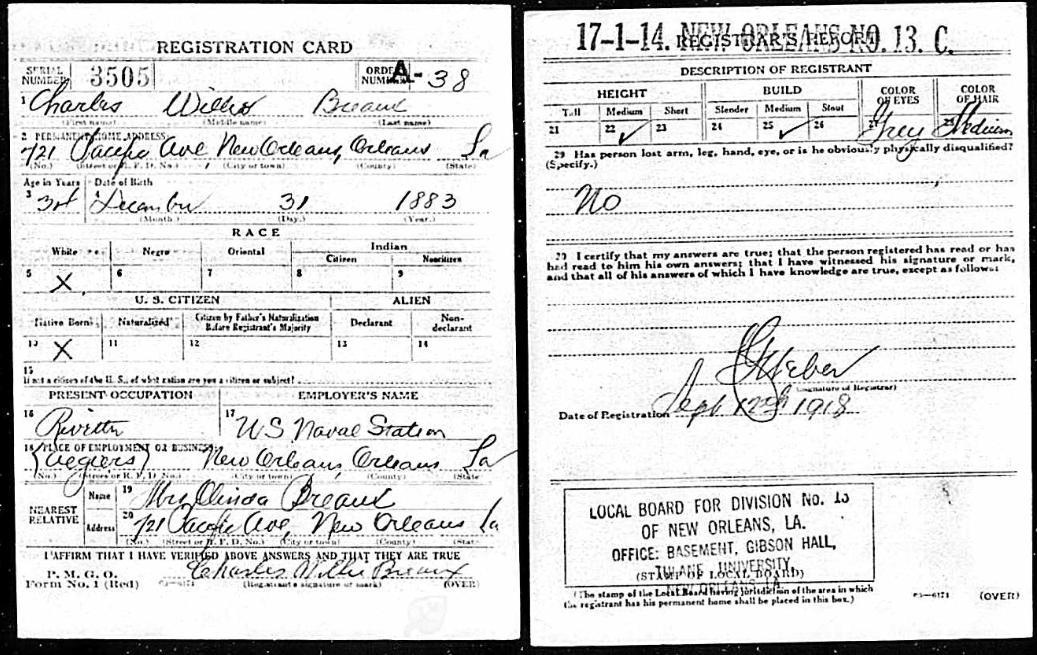 REGISTRATION CARD
SERIAL NUMBER 3505 ORDER NUMBER A-38
1 Charles Breaux
(First name) (Middle name) (Last name)
2 PERMANENT HOME ADDRESS:
721 Pacific Ave New Orleans, Orleans La
(No.) (Street or R. F. D. No.) (City or town) (County) (State)
Age in Years Date of Birth
3 4 December 31 1883
(Month.) (Day.) (Year.)
RACE
White Negro Oriental Indian
Citizen Noncitizen
5 X 6 7 8 9
U. S. CITIZEN ALIEN
Native Born Naturalized Citizen by Father's Naturalization Before Registrant's Majority Declarant Non-declarant
10 X 11 12 13 14
15
If not a citizen of the U. S., of what nation are you a citizen or subject?
PRESENT OCCUPATION EMPLOYER'S NAME
16 Riveter 17 U S Naval Station
18 PLACE OF EMPLOYMENT OR BUSINESS:
New Orleans Orleans La
(No.) (Street or R. F. D. No.) (City or town) (County) (State)
NEAREST RELATIVE
Name 19 Mrs Olinda Breaux
Address 20 721 Pacific Ave, New Orleans La
(No.) (Street or R. F. D. No.) (City or town) (County) (State)
I AFFIRM THAT I HAVE VERIFIED ABOVE ANSWERS AND THAT THEY ARE TRUE
P. M. G. O.
Form No. 1 (Red) Charles Willie Breaux
(Registrant's signature or mark) (OVER)
17-1-14. NEW ORLEANS, LA. NO. 13. C.
REGISTRAR'S REPORT
DESCRIPTION OF REGISTRANT
HEIGHT BUILD COLOR OF EYES COLOR OF HAIR
Tall Medium Short Slender Medium Stout
21 22 ✓ 23 24 25 ✓ 26 27 Grey 28 Medium
29 Has person lost arm, leg, hand, eye, or is he obviously physically disqualified?
(Specify.)
No
30 I certify that my answers are true; that the person registered has read or has
had read to him his own answers; that I have witnessed his signature or mark,
and that all of his answers of which I have knowledge are true, except as follows:
Weber
(Signature of Registrar)
Date of Registration Sept 12th 1918
LOCAL BOARD FOR DIVISION No. 13
OF NEW ORLEANS, LA.
OFFICE: BASEMENT, GIBSON HALL,
TULANE UNIVERSITY,
(STAMP OF LOCAL BOARD)
NEW ORLEANS, LA.
(The stamp of the Local Board having jurisdiction of the area in which
the registrant has his permanent home shall be placed in this box.)
(OVER)